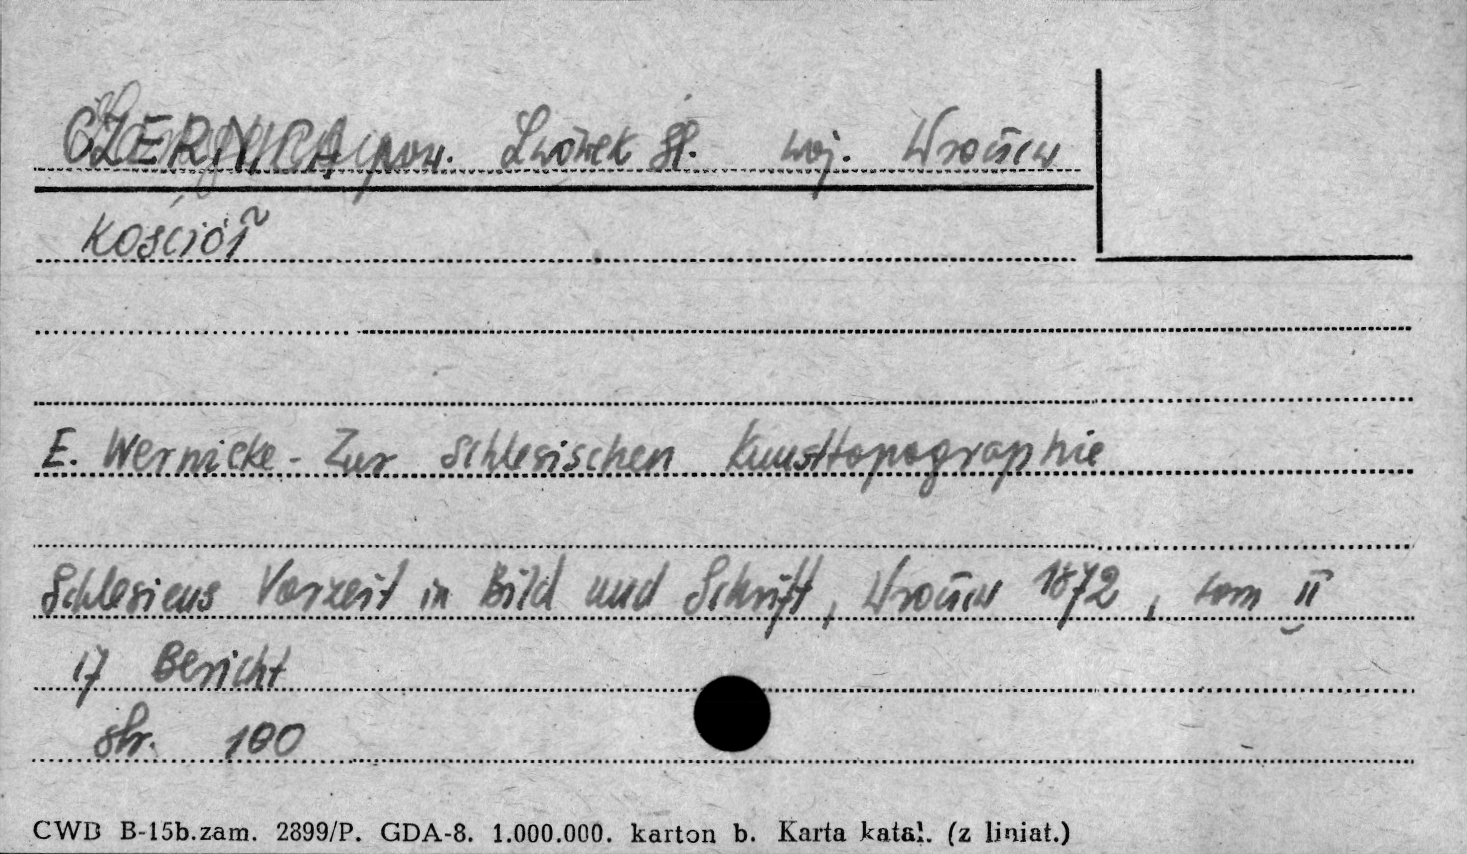 CZERNICA pow. Lwówek Śl. woj. Wrocław
Kościół
E. Wernicke - Zur Schlesischen Kunsttopographie
Schlesiens Vorzeit in Bild und Schrift, Wrocław 1872, tom II
17 Bericht
str. 100
CWD B-15b.zam. 2899/P. GDA-8. 1.000.000. karton b. Karta katal. (z liniat.)